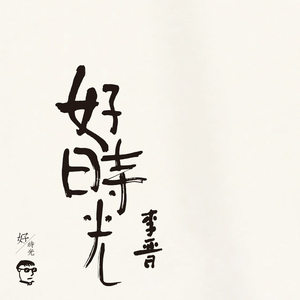 好
時
光
李晋
好
時光